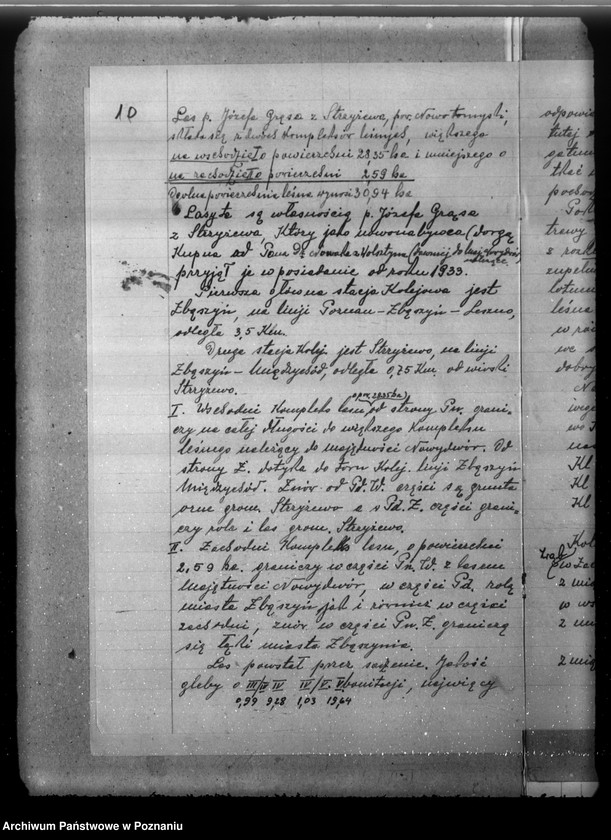 10
Las p. Józefa Grąsa z Strzyżewa, pow. Nowotomyśl,
składa się z dwóch kompleksów leśnych, większego
na wschodzie o powierzchni 28,35 ha i mniejszego o
na zachodzie o powierzchni 2,59 ha
Ogólna powierzchnia leśna wynosi 30,94 ha
Lasy te są własnością p. Józefa Grąsa
z Strzyżewa, który jako nowonabywca (drogą
kupna od Pana Dr. Nowaka z Wolsztyna (dawniej do maj. Nowydwór
należące)
przyjął je w posiadanie od roku 1933.
Pierwsza główna stacja kolejowa jest
Zbąszyń, na linji Poznań–Zbąszyń–Leszno,
odległa 3,5 km.
Druga stacja kolej. jest Strzyżewo, na linji
Zbąszyń–Międzychód, odległa 0,75 km. od wioski
Strzyżewo.
o pow. 28,35 ha
I. Wschodni kompleks lasu, od strony Pn. grani-
czy na całej długości do większego kompleksu
leśnego należący do majętności Nowydwór. Od
strony Z. dotyka do toru kolej. linji Zbąszyń
Międzychód. Znów od Pd. W. części są grunta
orne grom. Strzyżewo a w Pd. Z. części grani-
czy role i las grom. Strzyżewo.
II. Zachodni kompleks lasu, o powierzchni
2,59 ha. graniczy w części Pn. W. z lasem
majętności Nowydwór, w części Pd. rolę
miasta Zbąszyń jak i również w części
zachodni, znów w części Pn. Z. graniczą
się łąki miasta Zbąszynia.
Las powstał przez sadzenie. Jakość
gleby o III/IV IV IV/V. V. bonitacji, najwięcej
0,99 9,28 1,03 19,64
odpowie
tutej
gatun
pocho
trewy
z rozk
zupełn
leśna
w róż
we
dobry
Kl
Kl
Kl
Kol
z mi
w w
z mi
z mią
Archiwum Państwowe w Poznaniu